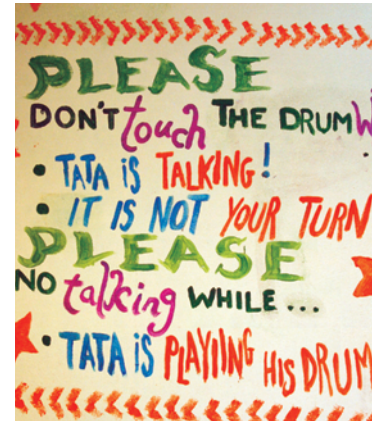 PLEASE
DON'T touch THE DRUM W
• TATA iS TALKING!
• IT IS NOT YOUR TURN
PLEASE
NO talking WHILE ...
• TATA iS PLAYIING HiS DRUM